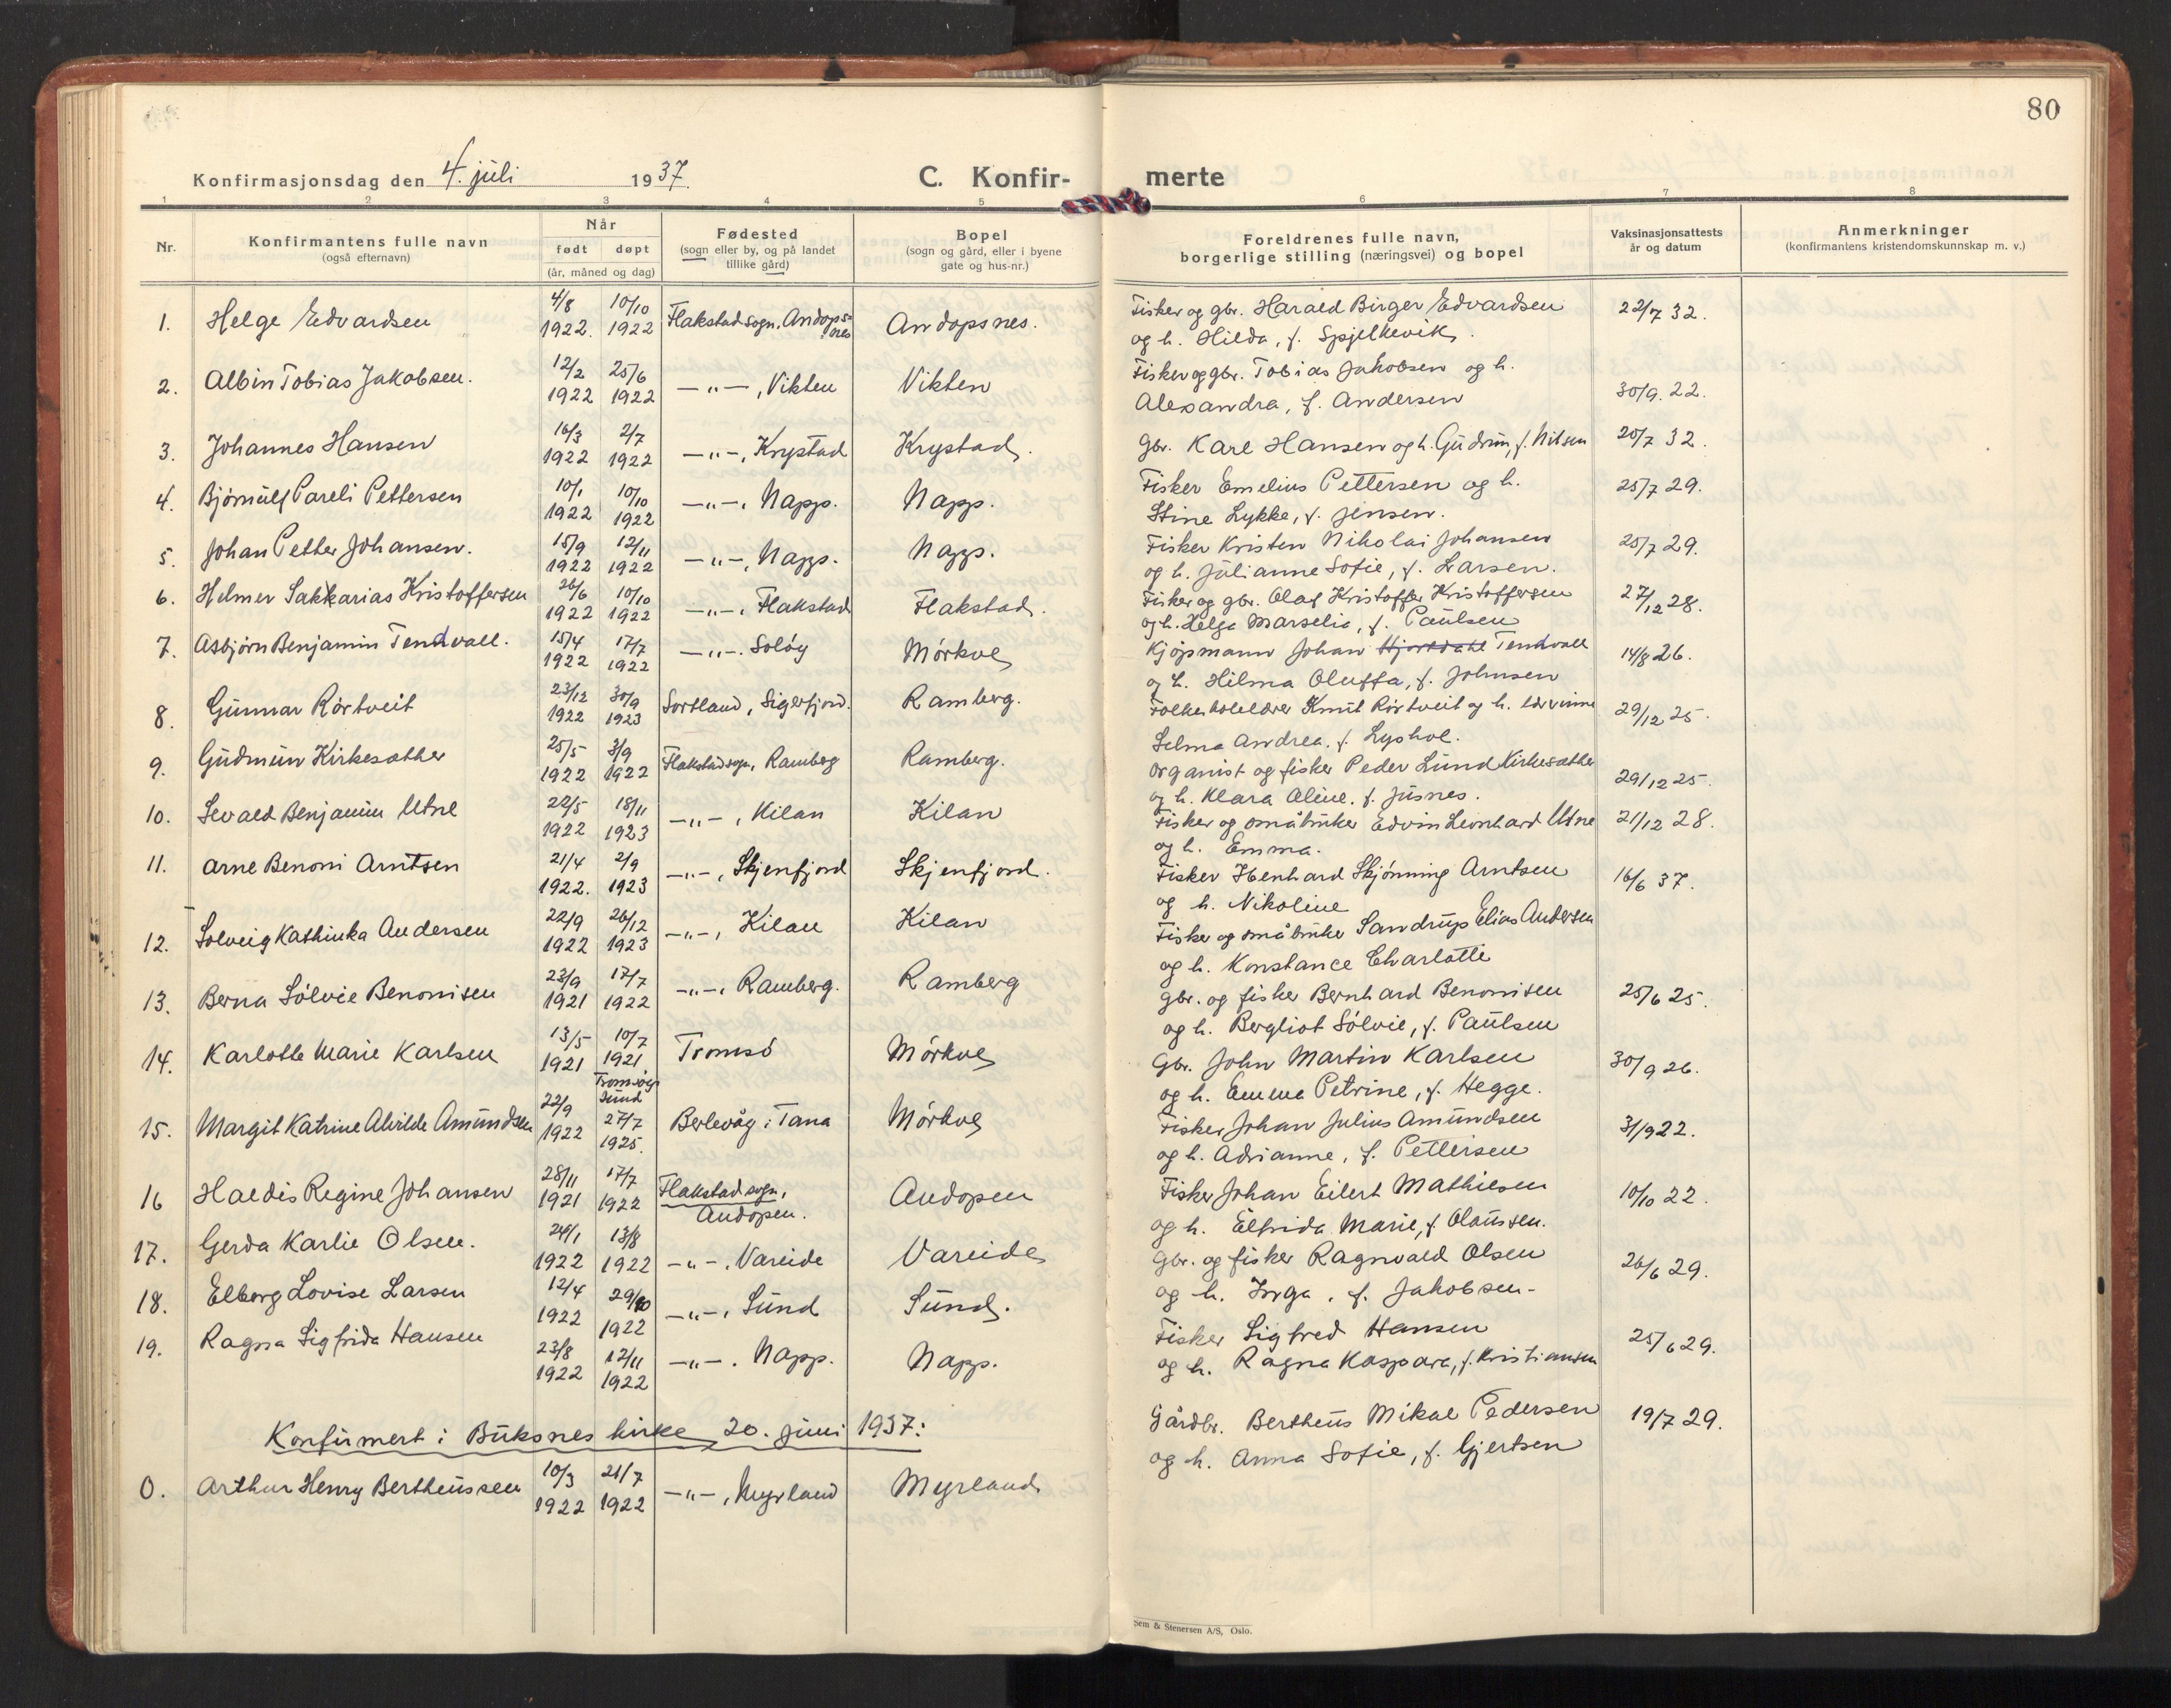 80
Konfirmasjonsdag den 4. juli 1937. C. Konfir- merte
1 2 3 4 5 6 7 8
Nr. Konfirmantens fulle navn (også efternavn) Når født døpt (år, måned og dag) Fødested (sogn eller by, og på landet tillike gård) Bopel (sogn og gård, eller i byene gate og hus-nr.) Foreldrenes fulle navn, borgerlige stilling (næringsvei) og bopel Vaksinasjonsattests år og datum Anmerkninger (konfirmantens kristendomskunnskap m. v.)
1. Helge Edvardsen 4/8 1922. 10/10 1922 Flakstad sogn, Andopsnes Andopsnes. Fisker og gbr. Harald Birger Edvardsen 22/7 32.
og h. Hilda, f. Spjelkevik.
2. Albin Tobias Jakobsen. 12/2 1922 25/6 1922 —"—, Vikten Vikten Fisker og gbr. Tobias Jakobsen og h.
Alexandra, f. Andersen 30/9. 22.
3. Johannes Hansen 16/3 1922 2/7 1922 —"—, Krystad Krystad. Gbr. Karl Hansen og h. Gudrun, f. Nilsen 20/7 32.
4. Bjørnulf Pareli Pettersen 10/1 1922 10/10 1922 —"—, Napp. Napp. Fisker Emelius Pettersen og h. 25/7 29.
Stine Lykke, f. Jensen.
5. Johan Petter Johansen. 15/9 1922 12/11 1922 —"—, Napp. Napp. Fisker Kristen Nikolai Johansen 25/7 29.
og h. Julianne Sofie, f. Larsen.
6. Helmer Sakkarias Kristoffersen 26/6 1922 10/10 1922 —"—, Flakstad Flakstad. Fisker og gbr. Olaf Kristoffer Kristoffersen 27/12 28.
og h. Helga Marselie, f. Paulsen
7. Asbjørn Benjamin Tendvall. 15/4 1922 17/7 1922 —"—. Soløy Mørkve Kjøpmann Johan Hjortdahl Tendvall 14/8 26.
og h. Hilma Oluffa, f. Johnsen
8. Gunnar Rörtveit 23/12 1922 30/9 1923 Sortland, Sigerfjord. Ramberg. Folkeskolelærer Knut Rörtveit og h. lærvinne 29/12 25.
Selma Andrea, f. Lyshol.
9. Gudmun Kirkesæther 25/5 1922 3/9 1922 Flakstad sogn, Ramberg Ramberg. Organist og fisker Peder Lund Kirkesæther 29/12 25.
og h. Klara Aline, f. Jusnes.
10. Sevald Benjamin Utne 22/5 1922 18/11 1923 —"—, Kilan Kilan Fisker og småbruker Edvin Leonhard Utne 21/12 28.
og h. Emma.
11. Arne Benoni Arntsen 21/4 1922. 2/9 1923 —"—, Skjenfjord Skjenfjord. Fisker Henhard Skjønning Arntsen 16/6 37.
og h. Nikoline
12. Solveig Kathinka Andersen 22/9 1922 26/12 1923 —"—, Kilan Kilan Fisker og småbruker Sandrup Elias Andersen
og h. Konstance Charlotte
13. Berna Sölvie Benonisen 23/9 1921 17/7 1922 —"—, Ramberg. Ramberg gbr. og fisker Bernhard Benonisen 25/6 25.
og h. Bergliot Sölvie, f. Paulsen
14. Karlotte Marie Karlsen 13/5 1921 10/7 1921 Tromsøysund Tromsö Mörkve Gbr. John Martin Karlsen 30/9 26.
og h. Emma Petrine, f. Hegge.
15. Margit Katrine Alvilde Amundsen 22/9 1922 27/7 1925. Berlevåg i Tana Mörkve Fisker Johan Julius Amundsen 31/9 22.
og h. Adrianne, f. Pettersen
16 Haldis Regine Johansen 28/11 1921 17/7 1922 Flakstad sogn, Andopen. Andopen Fisker Johan Eilert Mathiesen 10/10 22.
og h. Elfrida Marie, f. Olaussen.
17. Gerda Karlie Olsen. 24/1 1922 13/8 1922 —"—, Vareide Vareide Gbr. og fisker Ragnvald Olsen 26/6 29.
og h. Inga, f. Jakobsen-
18. Elborg Lovise Larsen 12/4 1922 29/10 1922 —"—, Sund Sund.
19. Ragna Sigfrida Hansen 23/8 1922 12/11 1922 —"—. Napp. Napp. Fisker Sigfred Hansen 25/6 29.
og h. Ragna Kaspara, f. Kristiansen
Konfirmert i Buksnes kirke 20. juni 1937:
0. Arthur Henry Bertheussen 10/3 1922 21/7 1922 —"—, Myrland Myrland Gårdbr. Bertheus Mikal Pedersen 19/7 29.
og h. Anna Sofie, f. Gjertsen
Sem & Stenersen A/S, Oslo.